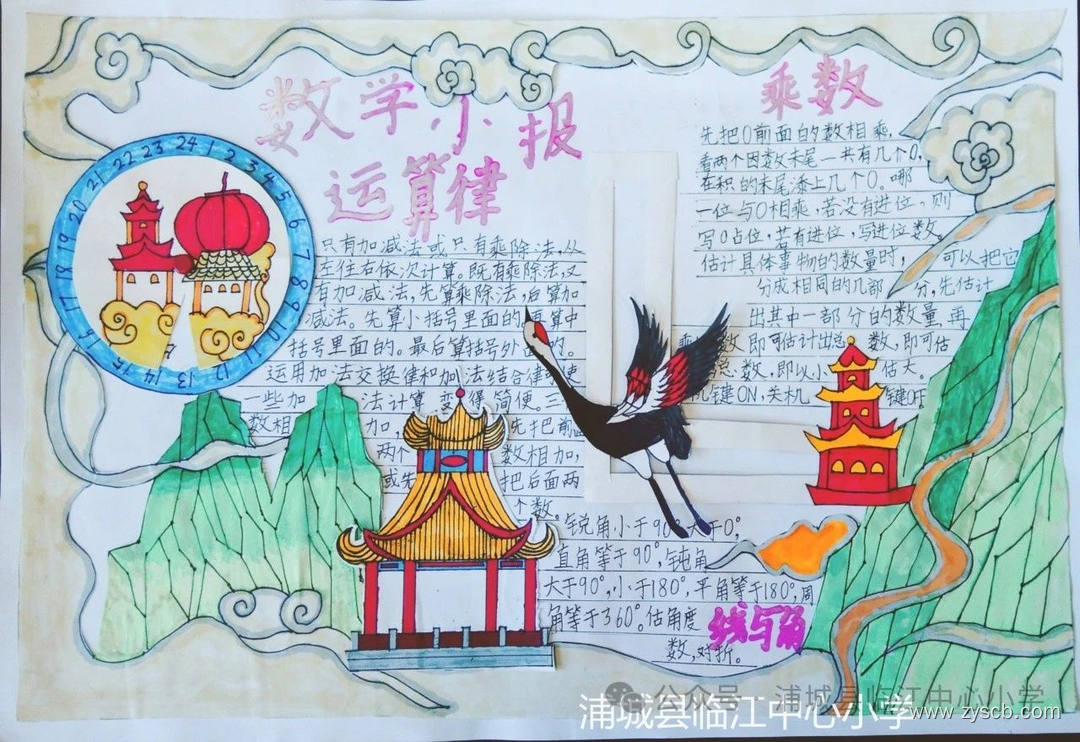 数学小报
运算律
只有加减法或只有乘除法,从
左往右依次计算。既有乘除法,又
有加减法,先算乘除法,后算加
减法。先算小括号里面的,再算中
括号里面的。最后算括号外面的。
运用加法交换律和加法结合律
一些加 法计算 变得 简便。三
数相 加, 先把前
两个 数相加,
或先 把后面两
个数。
乘数
先把0前面的数相乘,
看两个因数末尾一共有几个0,
在积的末尾添上几个0。哪
一位与0相乘,若没有进位,则
写0占位,若有进位,写进位数。
估计具体事物的数量时, 可以把它
分成相同的几部 分,先估计
出其中一部分的数量,再
数,即可估计出总 数,即可估
总 数,即以小 估大。
机键ON,关机 键OF
锐角小于90°大于0°,
直角等于90°,钝角
大于90°,小于180°,平角等于180°,周
角等于360°。估角度
数,对折。
线与角
24 1 2 3 4 5 6 7 8 9 10 11 12 13 14 15 16 17 18 19 20 21 22 23
公众号 浦城县临江中心小学
浦城县临江中心小学
www.zyscb.com